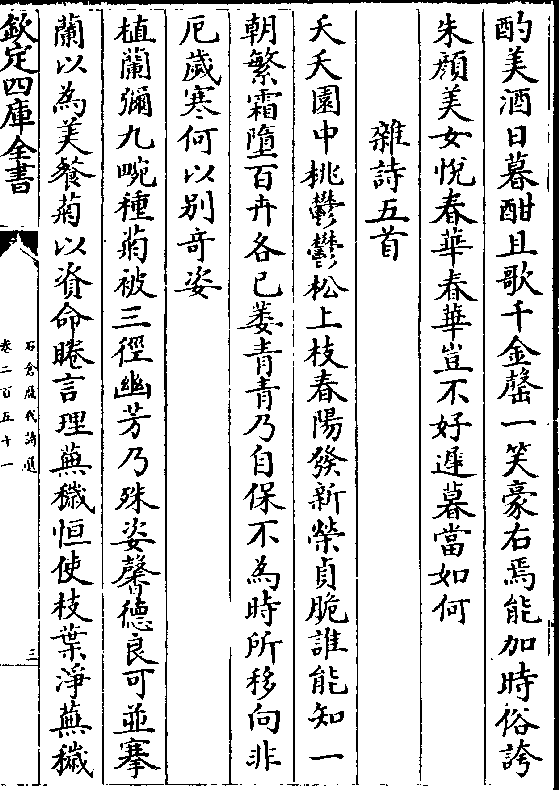 酌美酒日暮酣且歌千金罄一笑豪右焉能加時俗誇
朱顔美女悅春華春華豈不好遲暮當如何
雜詩五首
夭夭園中桃鬱鬱松上枝春陽發新榮貞脆誰能知一
朝繁霜墮百卉各已萎青青乃自保不為時所移向非
厄歲寒何以别竒姿
植蘭彌九畹種菊被三徑幽芳乃殊姿馨德良可並搴
蘭以為美餐菊以資命睠言理蕪穢恒使枝葉淨蕪穢
欽定四庫全書
石倉歷代詩選
卷二百五十一
三